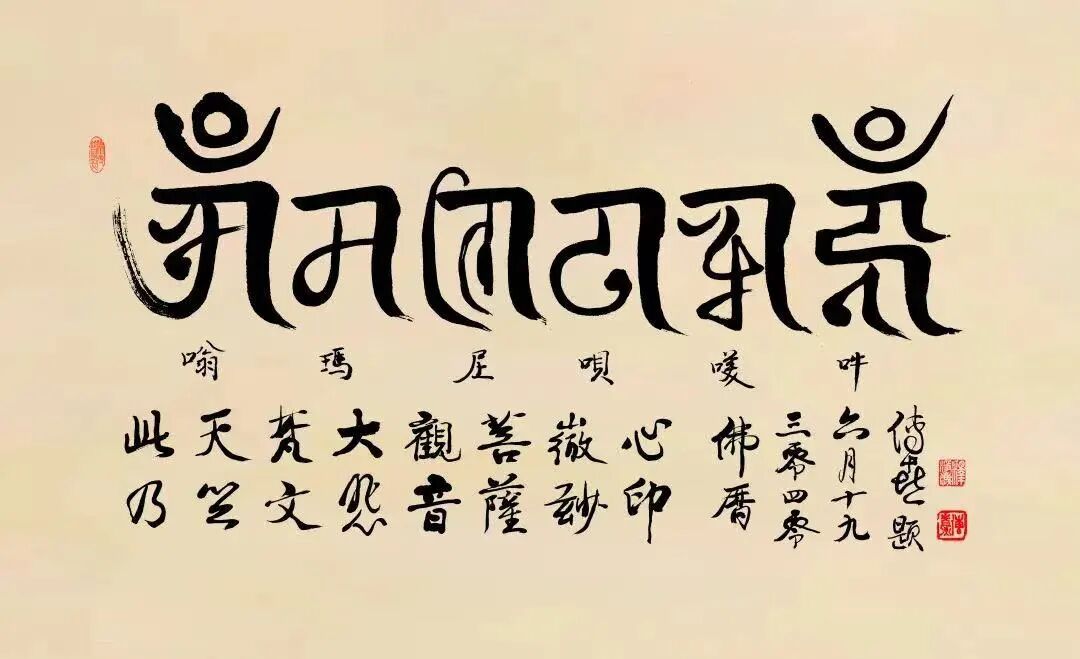 𑖌𑖼𑖦𑖜𑖰𑖢𑖟𑖿𑖦𑖸𑖮𑖳𑖼
嗡 瑪 尼 唄 吽
此乃
天竺
梵文
大悲
觀音
菩薩
微妙
心印
佛曆
三零四零
六月十九
傳喜題